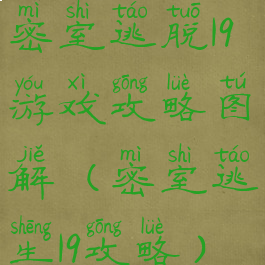 mì shì táo tuō
密室逃脱19
yóu xì gōng lüè tú
游戏攻略图
jiě mì shì táo
解（密室逃
shēng gōng lüè
生19攻略）